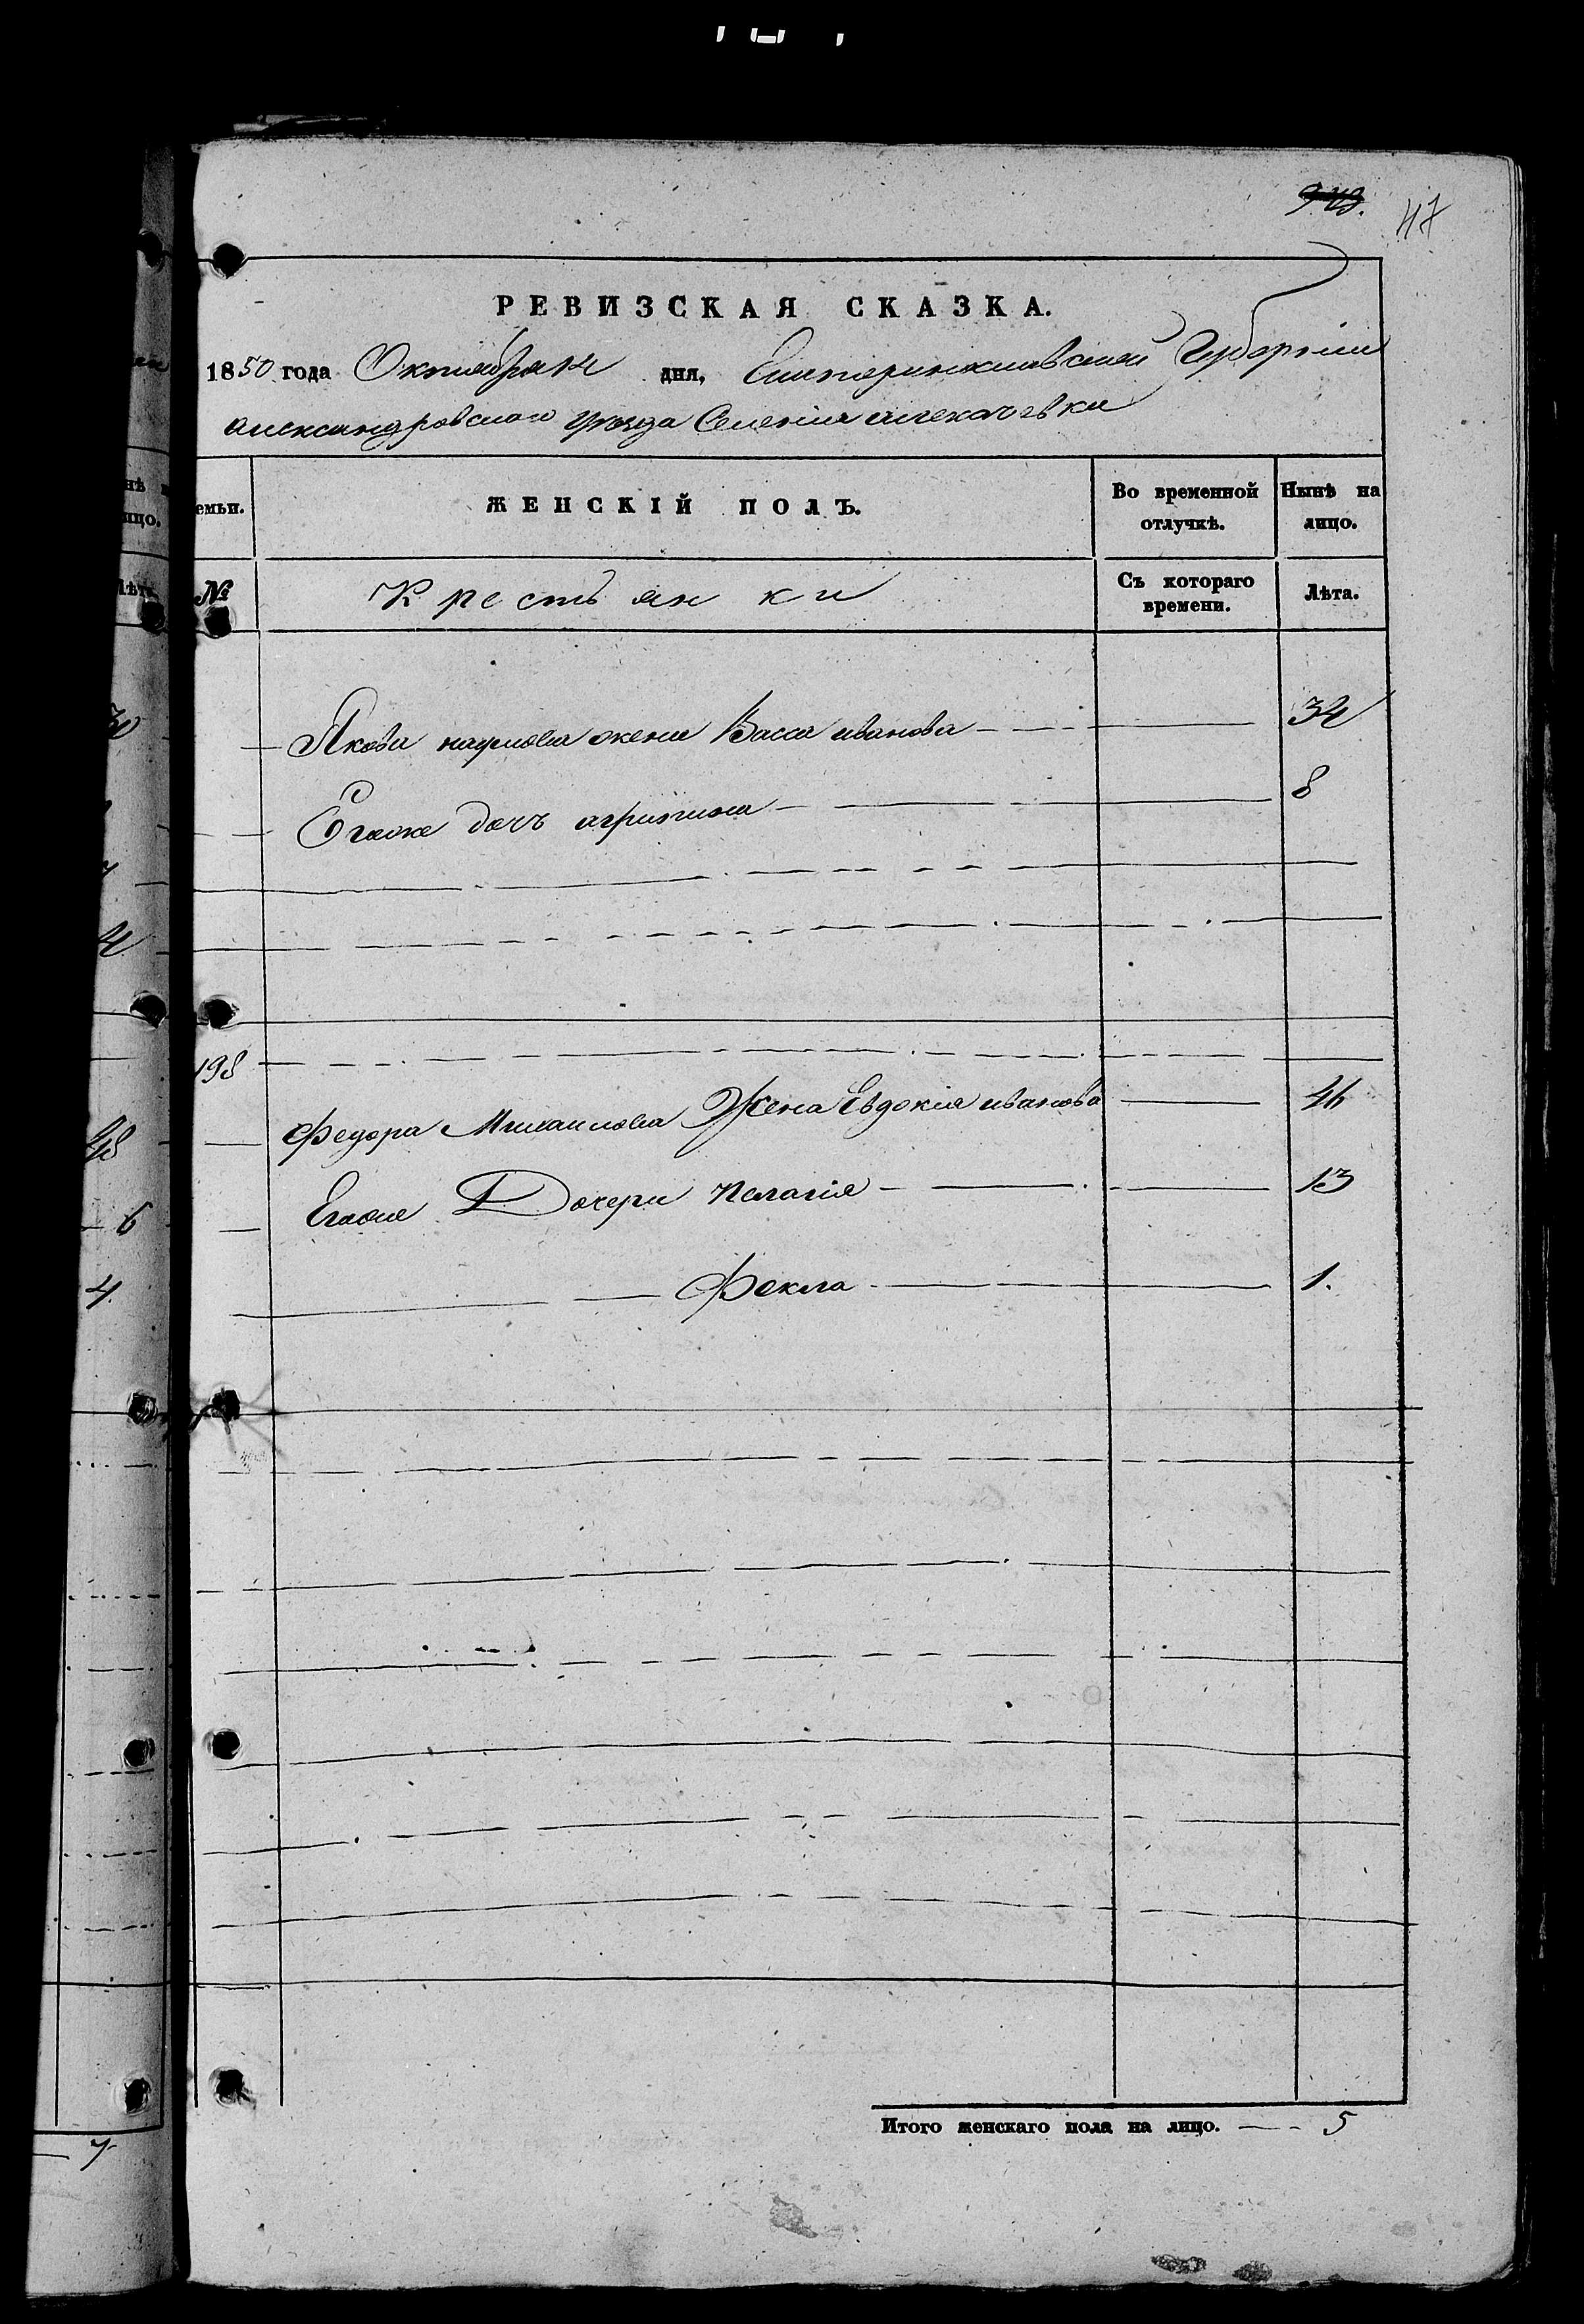 943. 47
РЕВИЗСКАЯ СКАЗКА.
1850 года Октября 14 дня, Екатеринославской Губерніи
александровскаго уезда Селенія
емьи. ЖЕНСКІЙ ПОЛЪ. Во временной отлучкѣ. Нынѣ на лицо.
№ Крестьянки Съ котораго времени. Лѣта.
Якова наумова жена Васса иванова 34
Егоже дочь агрипина 8
198
Федора Михаилова Жена Евдокія иванова 46
Егоже Дочери пелагія 13
Фекла 1.
Итого женскаго пола на лицо. 5
нѣ
ицо.
Лѣта
30
4
48
6
4.
7